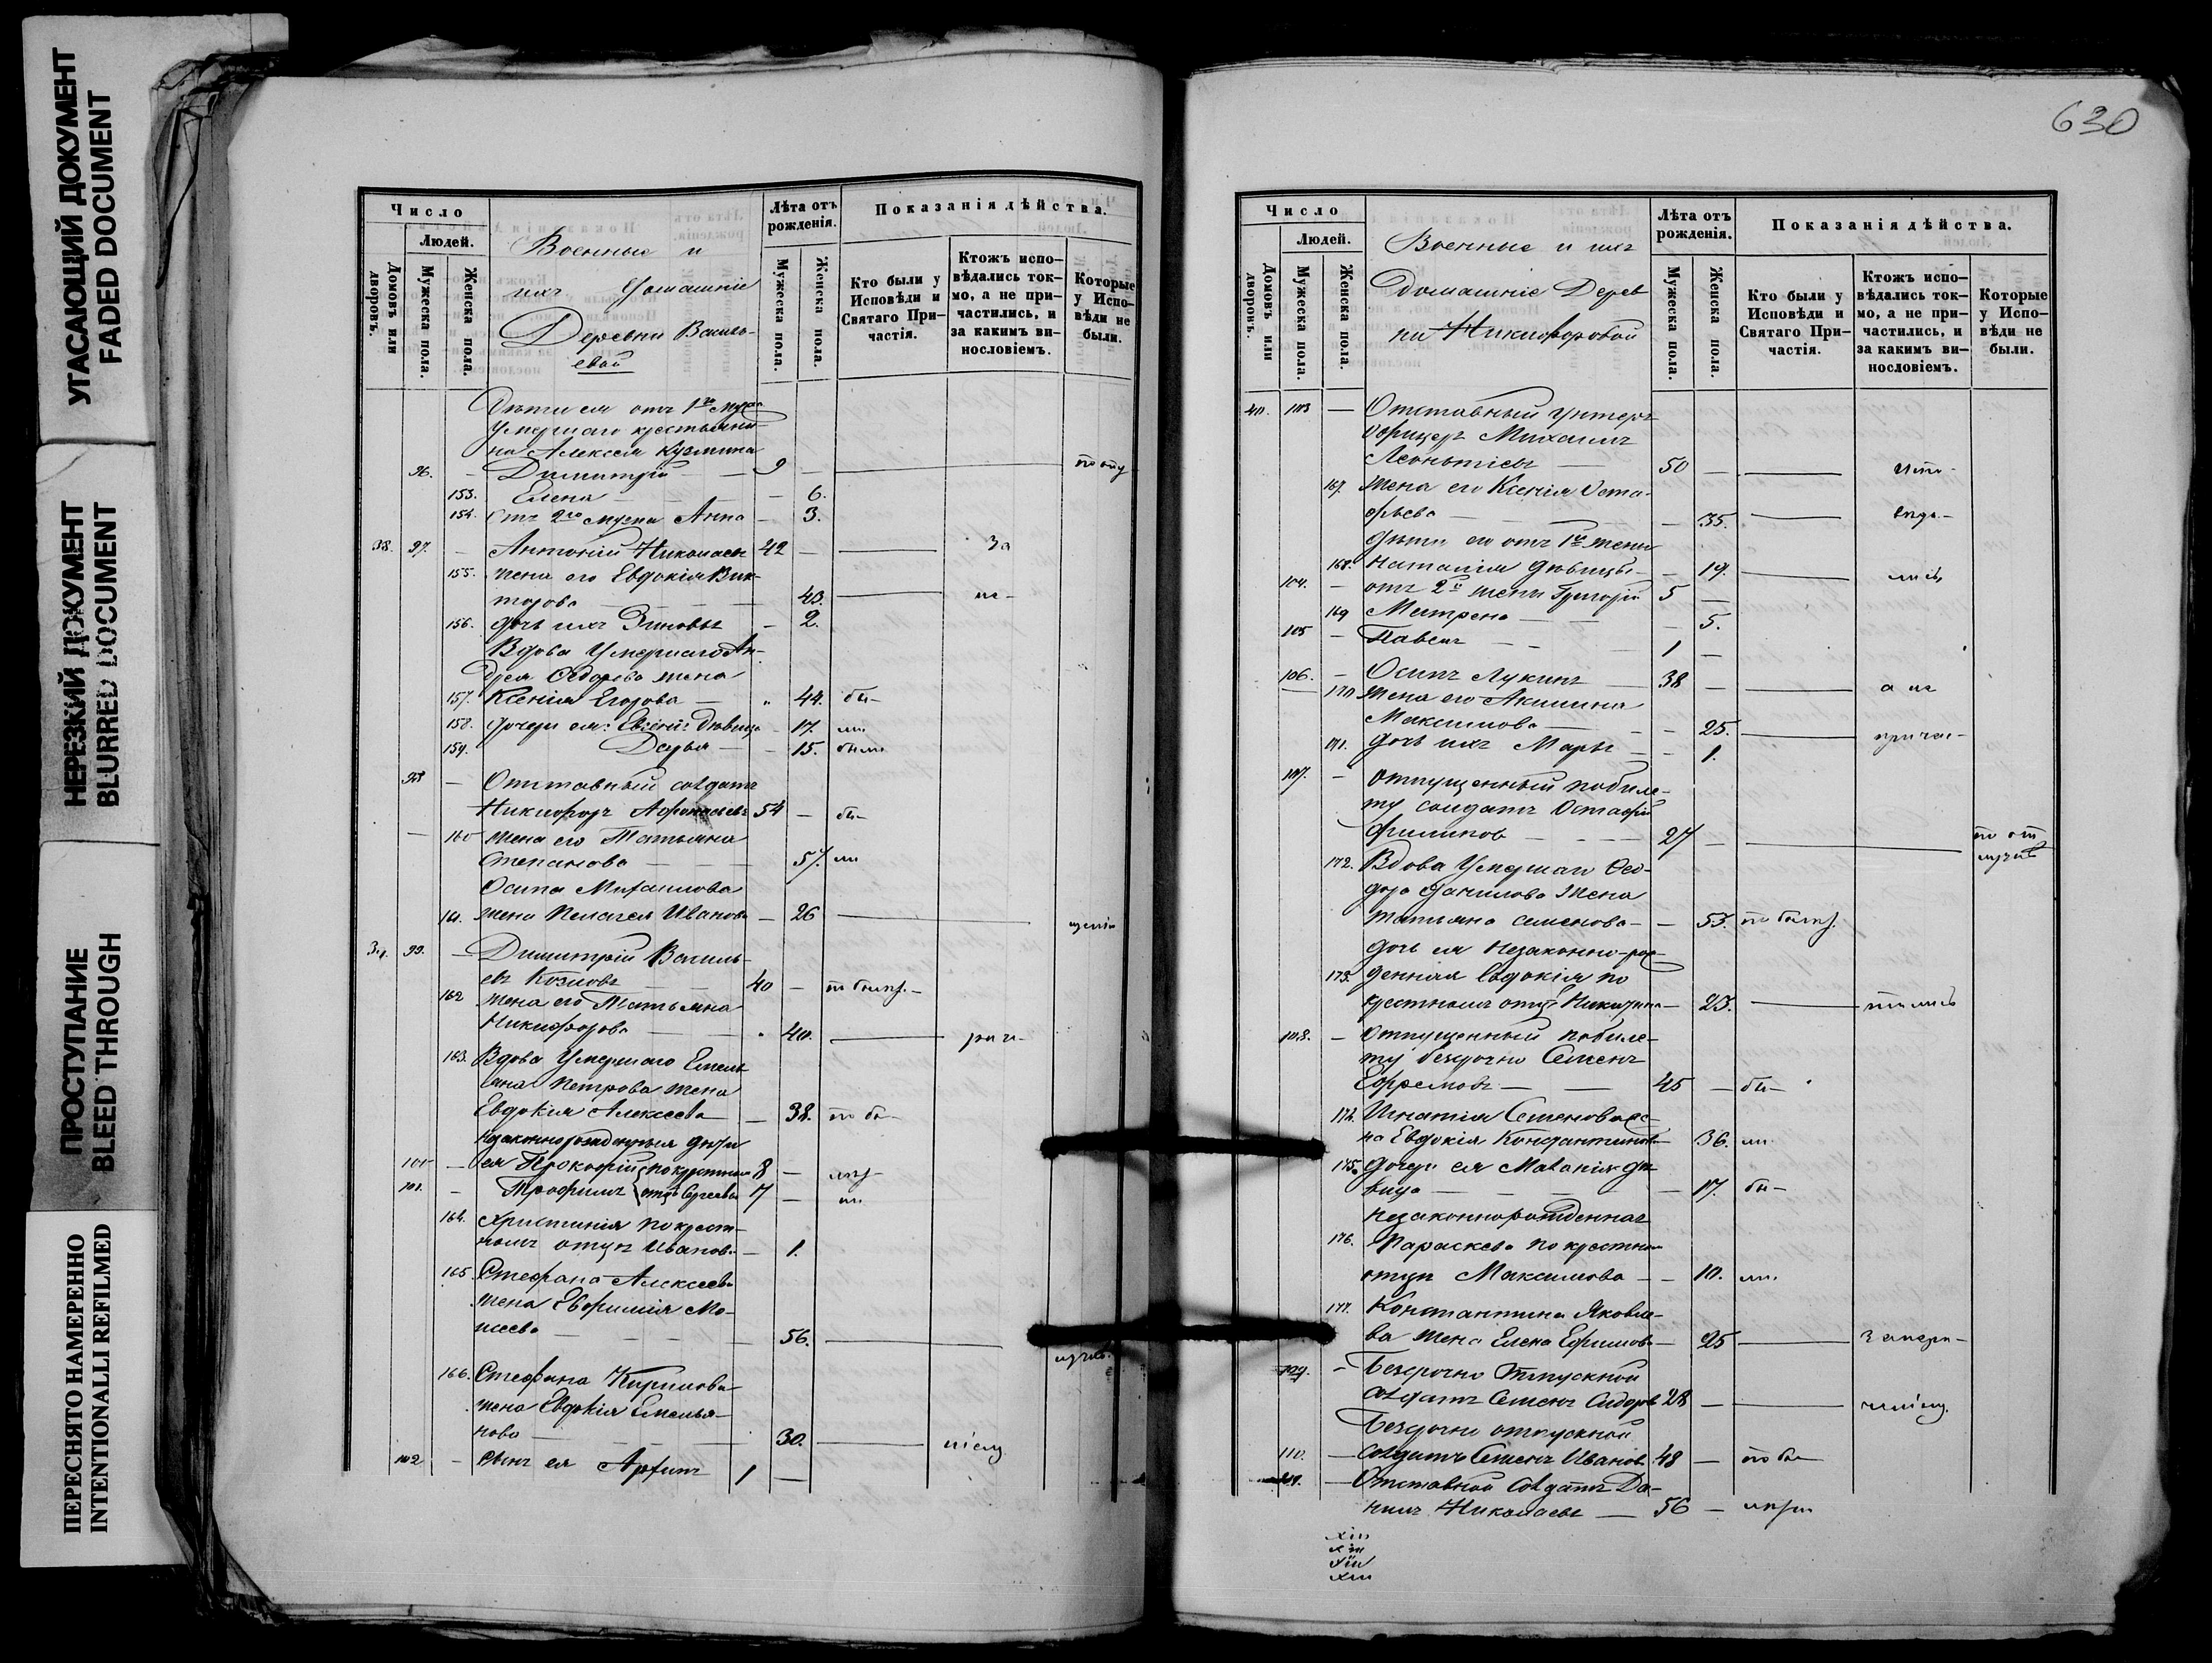 УГАСАЮЩИЙ ДОКУМЕНТ
FADED DOCUMENT
НЕРЕЗКИЙ ДОКУМЕНТ
BLURRED DOCUMENT
ПРОСТУПАНИЕ
BLEED THROUGH
ПЕРЕСНЯТО НАМЕРЕННО
INTENTIONALLI REFILMED
Число
Людей.
Домовъ или дворовъ.
Мужеска пола.
Женска пола.
Военные и
ихъ Домашніе
Деревни Василь-
евой
Лѣта отъ рожденія.
Мужеска пола.
Женска пола.
Показанія дѣйства.
Кто были у Исповѣди и Святаго При-частія.
Ктожъ испо-вѣдались ток-мо, а не при-частились, и за какимъ ви-нословіемъ.
Которые у Испо-вѣди не были.
Дѣти ея отъ 1го мужа
умершаго крестьяни-
на Алексѣя Кузмина
96. - Димитрій — 9 —
153. Елена — 6.
154. Отъ 2го мужа Анна — 3.
38. 97. - Антоній Николаевъ 42 — За
155. жена его Евдокія Вик-
торова — 43. — не-
156. дочь ихъ Зиновья — 2.
Вдова Умершаго Ан-
дрея Ѳедорова жена
157. Ксенія Егорова — 44. бы-
158. Дочери ея: Евгенія дѣвица — 17. ли
159. Дарья — 15. были
98 — Отставный солдатъ
Никифоръ Афанасьевъ 54 — бы-
160 жена его Татьяна
Степанова — 57. ли
Осипа Михаилова
161. жена Пелагея Иванова — 26
39. 99. — Димитрій Василь-
евъ Козловъ 40 —
162 жена его Татьяна
Никифорова — 40.
163. Вдова Умершаго Емель
яна Петрова жена
Евдокія Алексѣева — 38.
Незаконнорожденныя дѣти
100 — ея Прокофій по крестному 8 —
101. - Трофимъ отцу Сергѣевы 7 —
164. Христинія по крест-
ному отцу Иванова — 1.
165. Стефана Алексѣева
жена Евфимія Мо-
исеева — 56.
166. Стефана Кирилова
жена Евдокія Емелья-
нова — 30.
102 — Сынъ ея Архипъ 1 —
630
Число
Людей.
Домовъ или дворовъ.
Мужеска пола.
Женска пола.
Военные и ихъ
домашніе Дерев
ни Никифоровой
Лѣта отъ рожденія.
Мужеска пола.
Женска пола.
Показанія дѣйства.
Кто были у Исповѣди и Святаго При-частія.
Ктожъ испо-вѣдались ток-мо, а не при-частились, и за какимъ ви-нословіемъ.
Которые у Испо-вѣди не были.
40. 103 — Отставный унтеръ
офицеръ Михаилъ
Леонтіевъ — 50 —
167. жена его Ксенія Оста-
фьева — 35.
дѣти его отъ 1й жены
168. Наталія дѣвица — 19.
104. - отъ 2й жены Григорій 5 —
169 Матрена — 5.
105 - Павелъ — 1 —
106. - Осипъ Лукинъ 38 — а не
170 жена его Акилина
Максимова — 25. — причас-
171. дочь ихъ Марья — 1.
107. - отпущенный по биле-
ту солдатъ Остафій
Филиповъ — 27 — по от
лучкѣ
172. Вдова Умершаго Ѳео-
дора Данилова жена
Татьяна Семенова — 53.
дочь ея Незаконно-рож-
173. денная Евдокія по
крестному отцу Никитина — 23. — тились
108. — Отпущенный по биле-
ту безсрочно Семенъ
Ефремовъ — 45 — бы-
174. Игнатія Семенова же-
на Евдокія Константинова 36. ли
175. Дочери ея Маланія дѣ-
вица — 17. бы-
незаконнорожденная
176. Параскева по крестному
отцу Максимова — 10. ли.
177. Константина Яковле-
ва жена Елена Ефимова — 25
109. - Безсрочно Отпускной
солдатъ Семенъ Сидоровъ 28 —
Безсрочно отпускной
110. — солдатъ Семенъ Ивановъ 48 —
111. — Отставной Солдатъ Да-
нилъ Николаевъ — 56 —